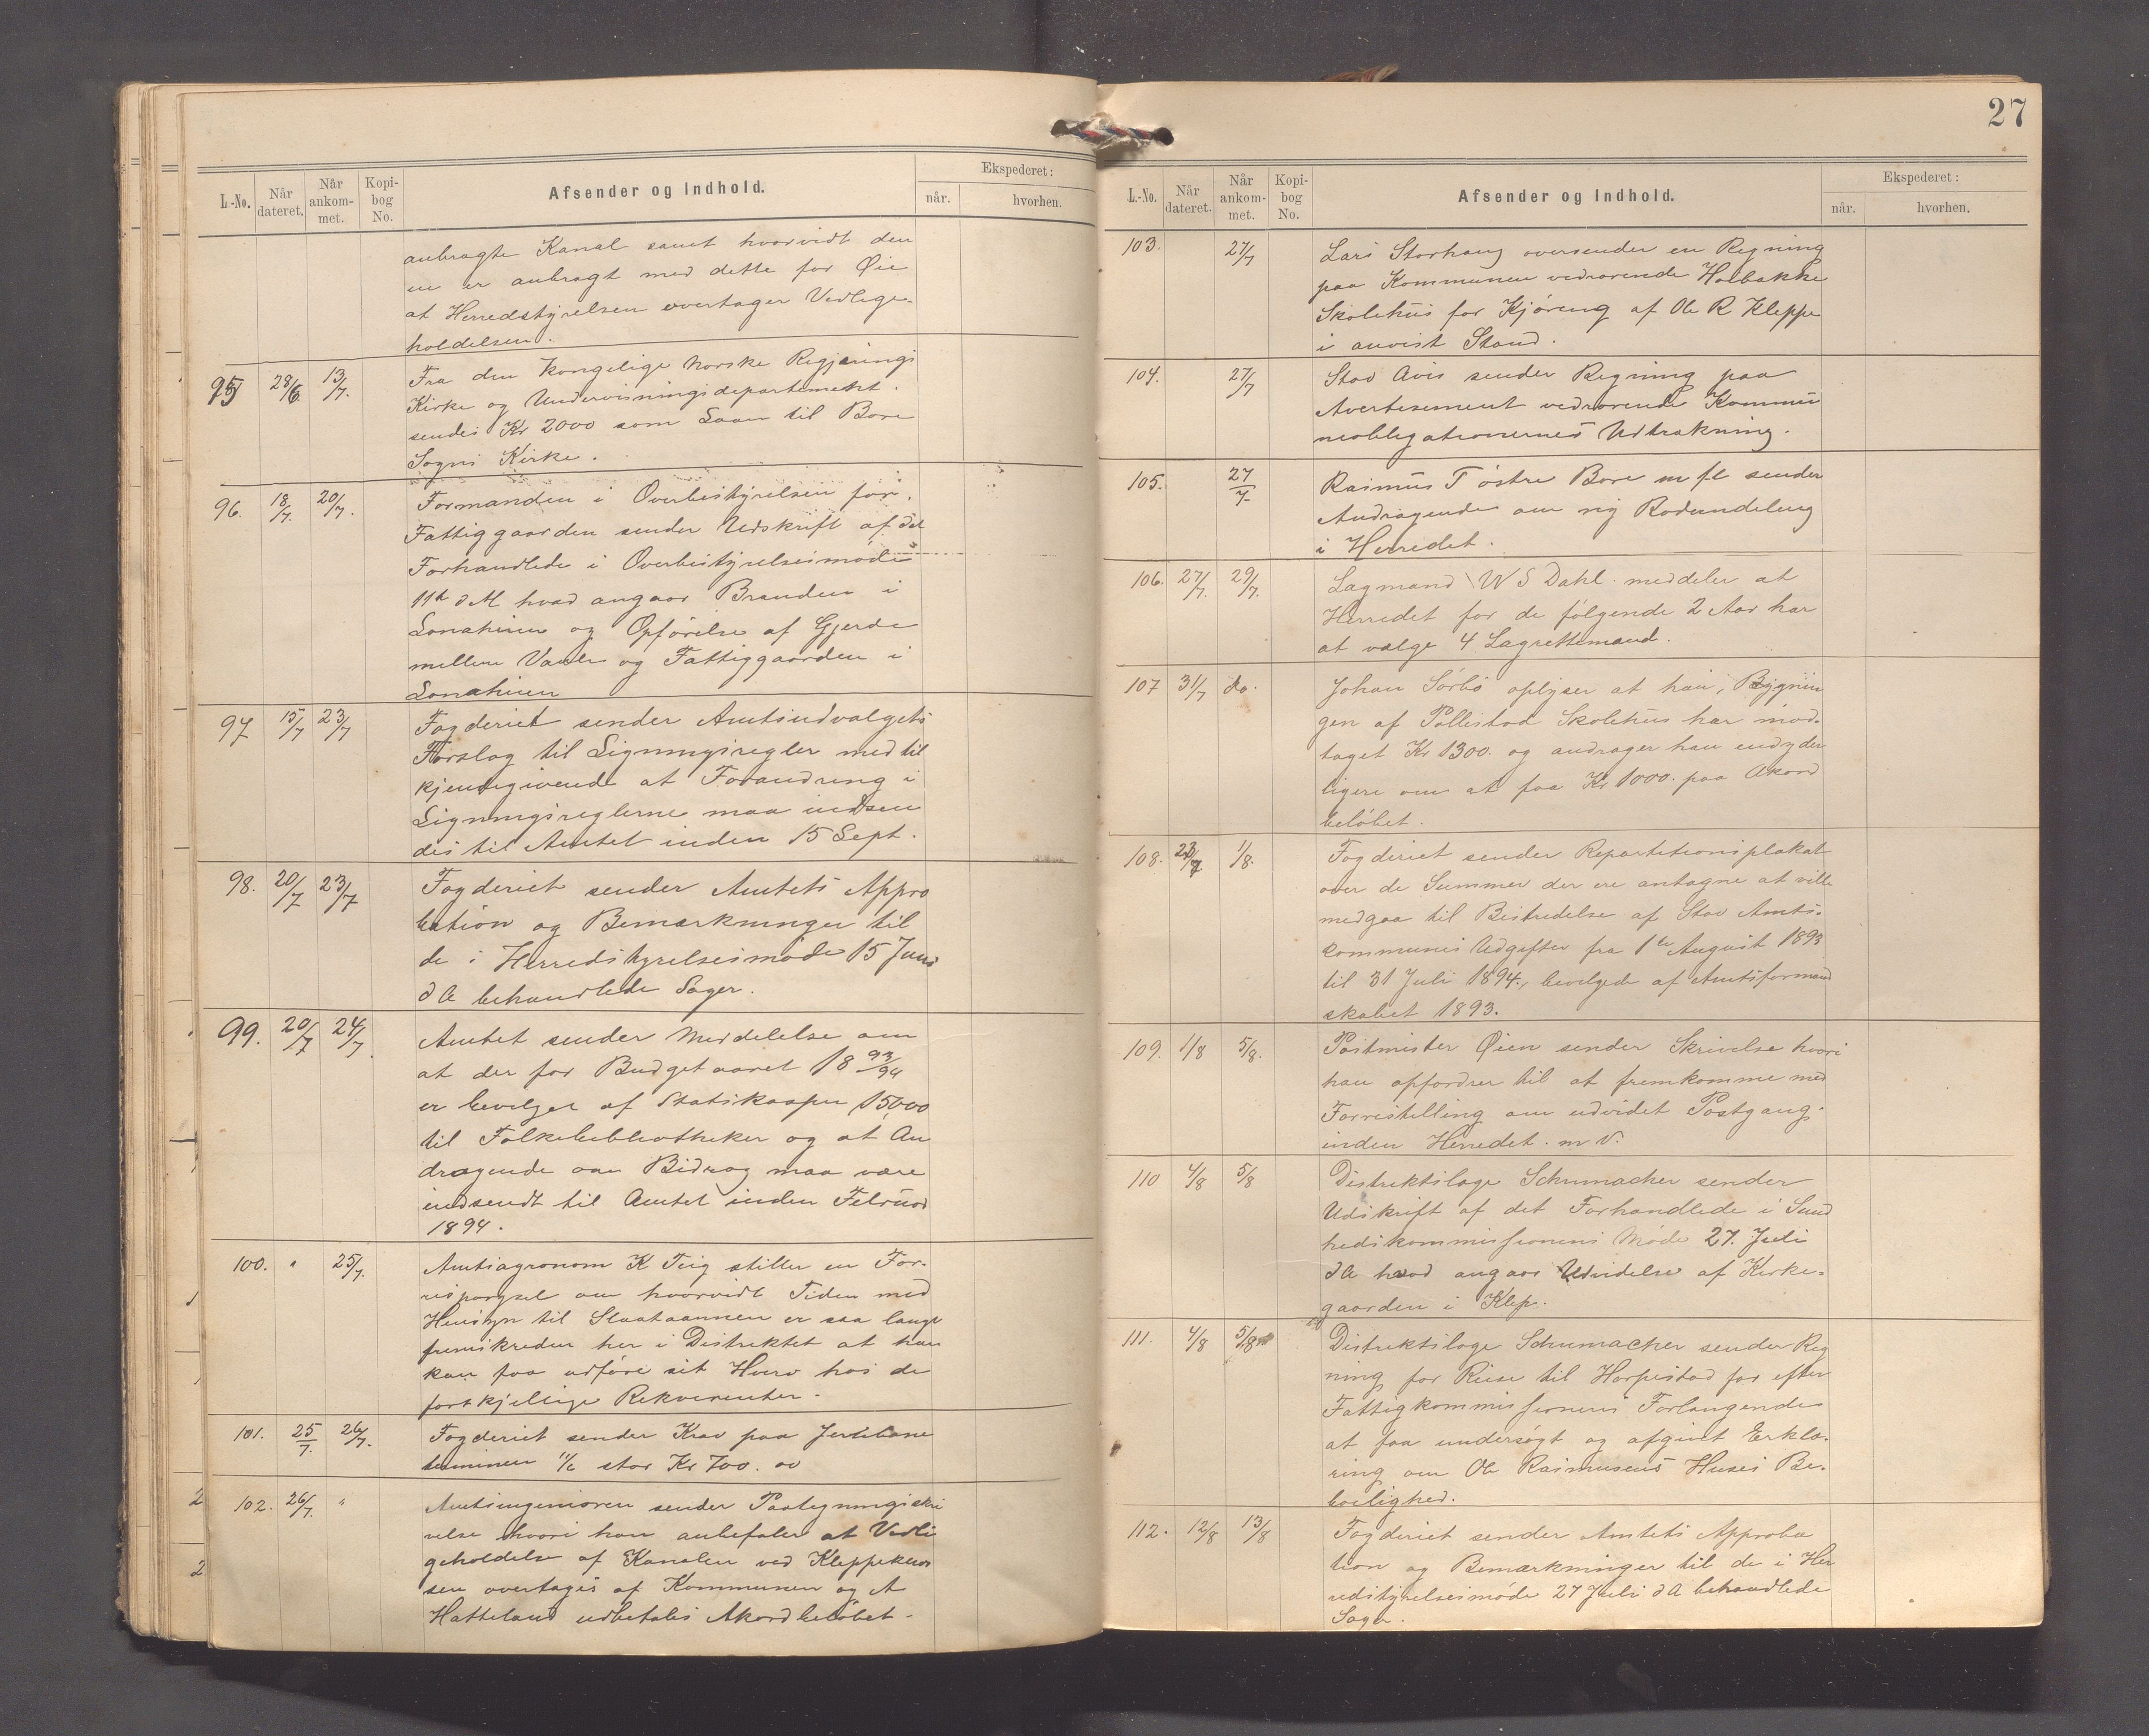 L.-No.
Når dateret.
Når ankom-met.
Kopi-bog No.
Afsender og Indhold.
Ekspederet:
når.
hvorhen.
anbragte Kanal samt hvorvidt den
en er anbragt med dette for Øie
at Herredstyrelsen overtager Vedlige-
holdelsen.
95 28/6 13/7. Fra den kongelige norske Regjerings
Kirke og Undervisningsdepartement.
sendes Kr 2000 som Laan til Bore
Sogns Kirke.
96. 18/7. 20/7. Formanden i Overbestyrelsen for
Fattiggaarden sender Udskrift af det
Forhandlede i Overbestyrelsesmøde
11te d M hvad angaar Branden i
Lonahiren og Opførelse af Gjerde
mellem Vaule og Fattiggaarden i
Lonahiren
97 15/7 23/7 Fogderiet sender Amtsudvalgets
Forslag til Ligningsregler med til
kjendegivende at Forandring i
Ligningsreglerne maa indsen
des til Amtet inden 15 Sept.
98. 20/7 23/7 Fogderiet sender Amtets Appro
bation og Bemærkninger til
de i Herredstyrelsesmøde 15 Juni
d A behandlede Sager.
99. 20/7 24/7. Amtet sender Meddelelse om
at der for Budgetaaret 18 93/94
er bevilget af Statskassen 15000
til Folkebibliotheker og at An
dragende om Bidrag maa være
indsendt til Amtet inden Februar
1894.
100. " 25/7. Amtsagronom K Teig stiller en For-
espørgsel om hvorvidt Tiden med
Hensyn til Slaataannen er saa langt
fremskreden her i Distriktet at han
kan faa udføre sit Hverv hos de
forskjellige Rekvirenter.
101. 25/7. 26/7. Fogderiet sender Krav paa Jernbane
terminen 11/6 stor Kr 700. 00
102. 26/7. " Amtsingeniøren sender Paategningsskri
velse hvori han anbefaler at Vedli
geholdelse af Kanalen ved Kleppekros
sen overtages af Kommunen og A
Hatteland udbetales Akordbeløbet.
27
L.-No.
Når dateret.
Når ankom-met.
Kopi-bog No.
Afsender og Indhold.
Ekspederet:
når.
hvorhen.
103. 27/7 Lars Storhaug oversender en Regning
paa Kommunen vedrørende Holbakke
Skolehus for Kjøreng af Ole R Kleppe
i anvist Stand.
104. 27/7 Stav Avis sender Regning paa
Avertisement vedrørende Kommu
neobligationernes Udtrækning.
105. 27/7 Rasmus T østre Bore m fl sender
Andragende om ny Rodeinddeling
i Herredet.
106. 27/7. 29/7. Lagmand W S Dahl meddeler at
Herredet for de følgende 2 Aar har
at vælge 4 Lagrettemænd.
107 31/7 do. Johan Sørbø oplyser at han i Bygnin
gen af Pollestad Skolehus har mod-
taget Kr 1300. og andrager han endyder
ligere om at faa Kr 1000. paa Akord
beløbet.
108. 23/7 1/8. Fogderiet sender Repartitionsplakat
over de Summer der ere antagne at ville
medgaa til Bestridelse af Stav Amts-
kommunes Udgifter fra 1te August 1893
til 31 Juli 1894., bevilgede af Amtsformand
skabet 1893.
109. 1/8 5/8. Postmester Øien sender Skrivelse hvori
han opfordrer til at fremkomme med
Forestilling om udvidet Postgang
inden Herredet. m V.
110 4/8 5/8 Distriktslæge Schumacher sender
Udskrift af det Forhandlede i Sund
hedskommissionens Møde 27. Juli
d A hvad angaar Udvidelse af Kirke-
gaarden i Klep.
111. 4/8 5/8 Distriktslæge Schumacher sender Reg
ning for Reise til Horpestad for efter
Fattigkommissionens Forlangende
at faa undersøgt og afgivet Erklæ-
ring om Ole Rasmusens Huses Be-
boelighed.
112. 12/8 13/8 Fogderiet sender Amtets Approba
tion og Bemærkninger til de i Her
redstyrelsesmøde 27 Juli d A behandlede
Sager.